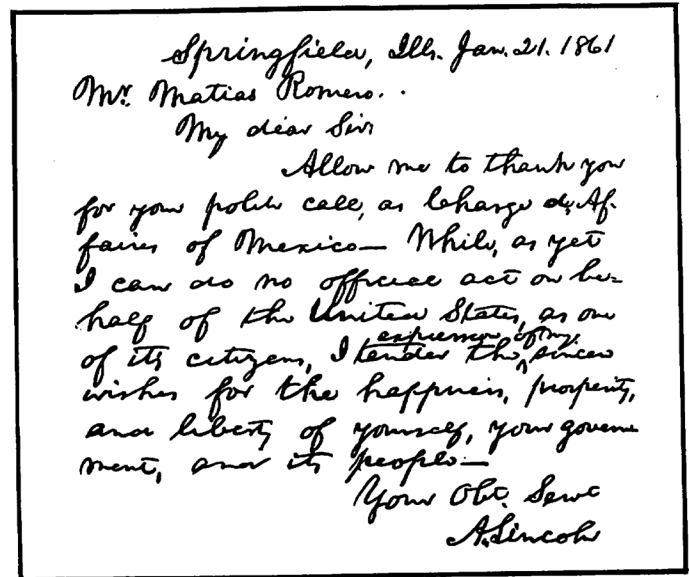 Springfield, Ills. Jan. 21. 1861
Mr. Matias Romero.
My dear Sir
Allow me to thank you
for your polite call, as Charge d'Af-
faires of Mexico— While, as yet
I can do no official act on be-
half of the United States, as one
of its citizens, I tender the expression of my sincere
wishes for the happiness, prosperity,
and liberty of yourself, your govern-
ment, and its people—
Your Obt. Servt
A. Lincoln